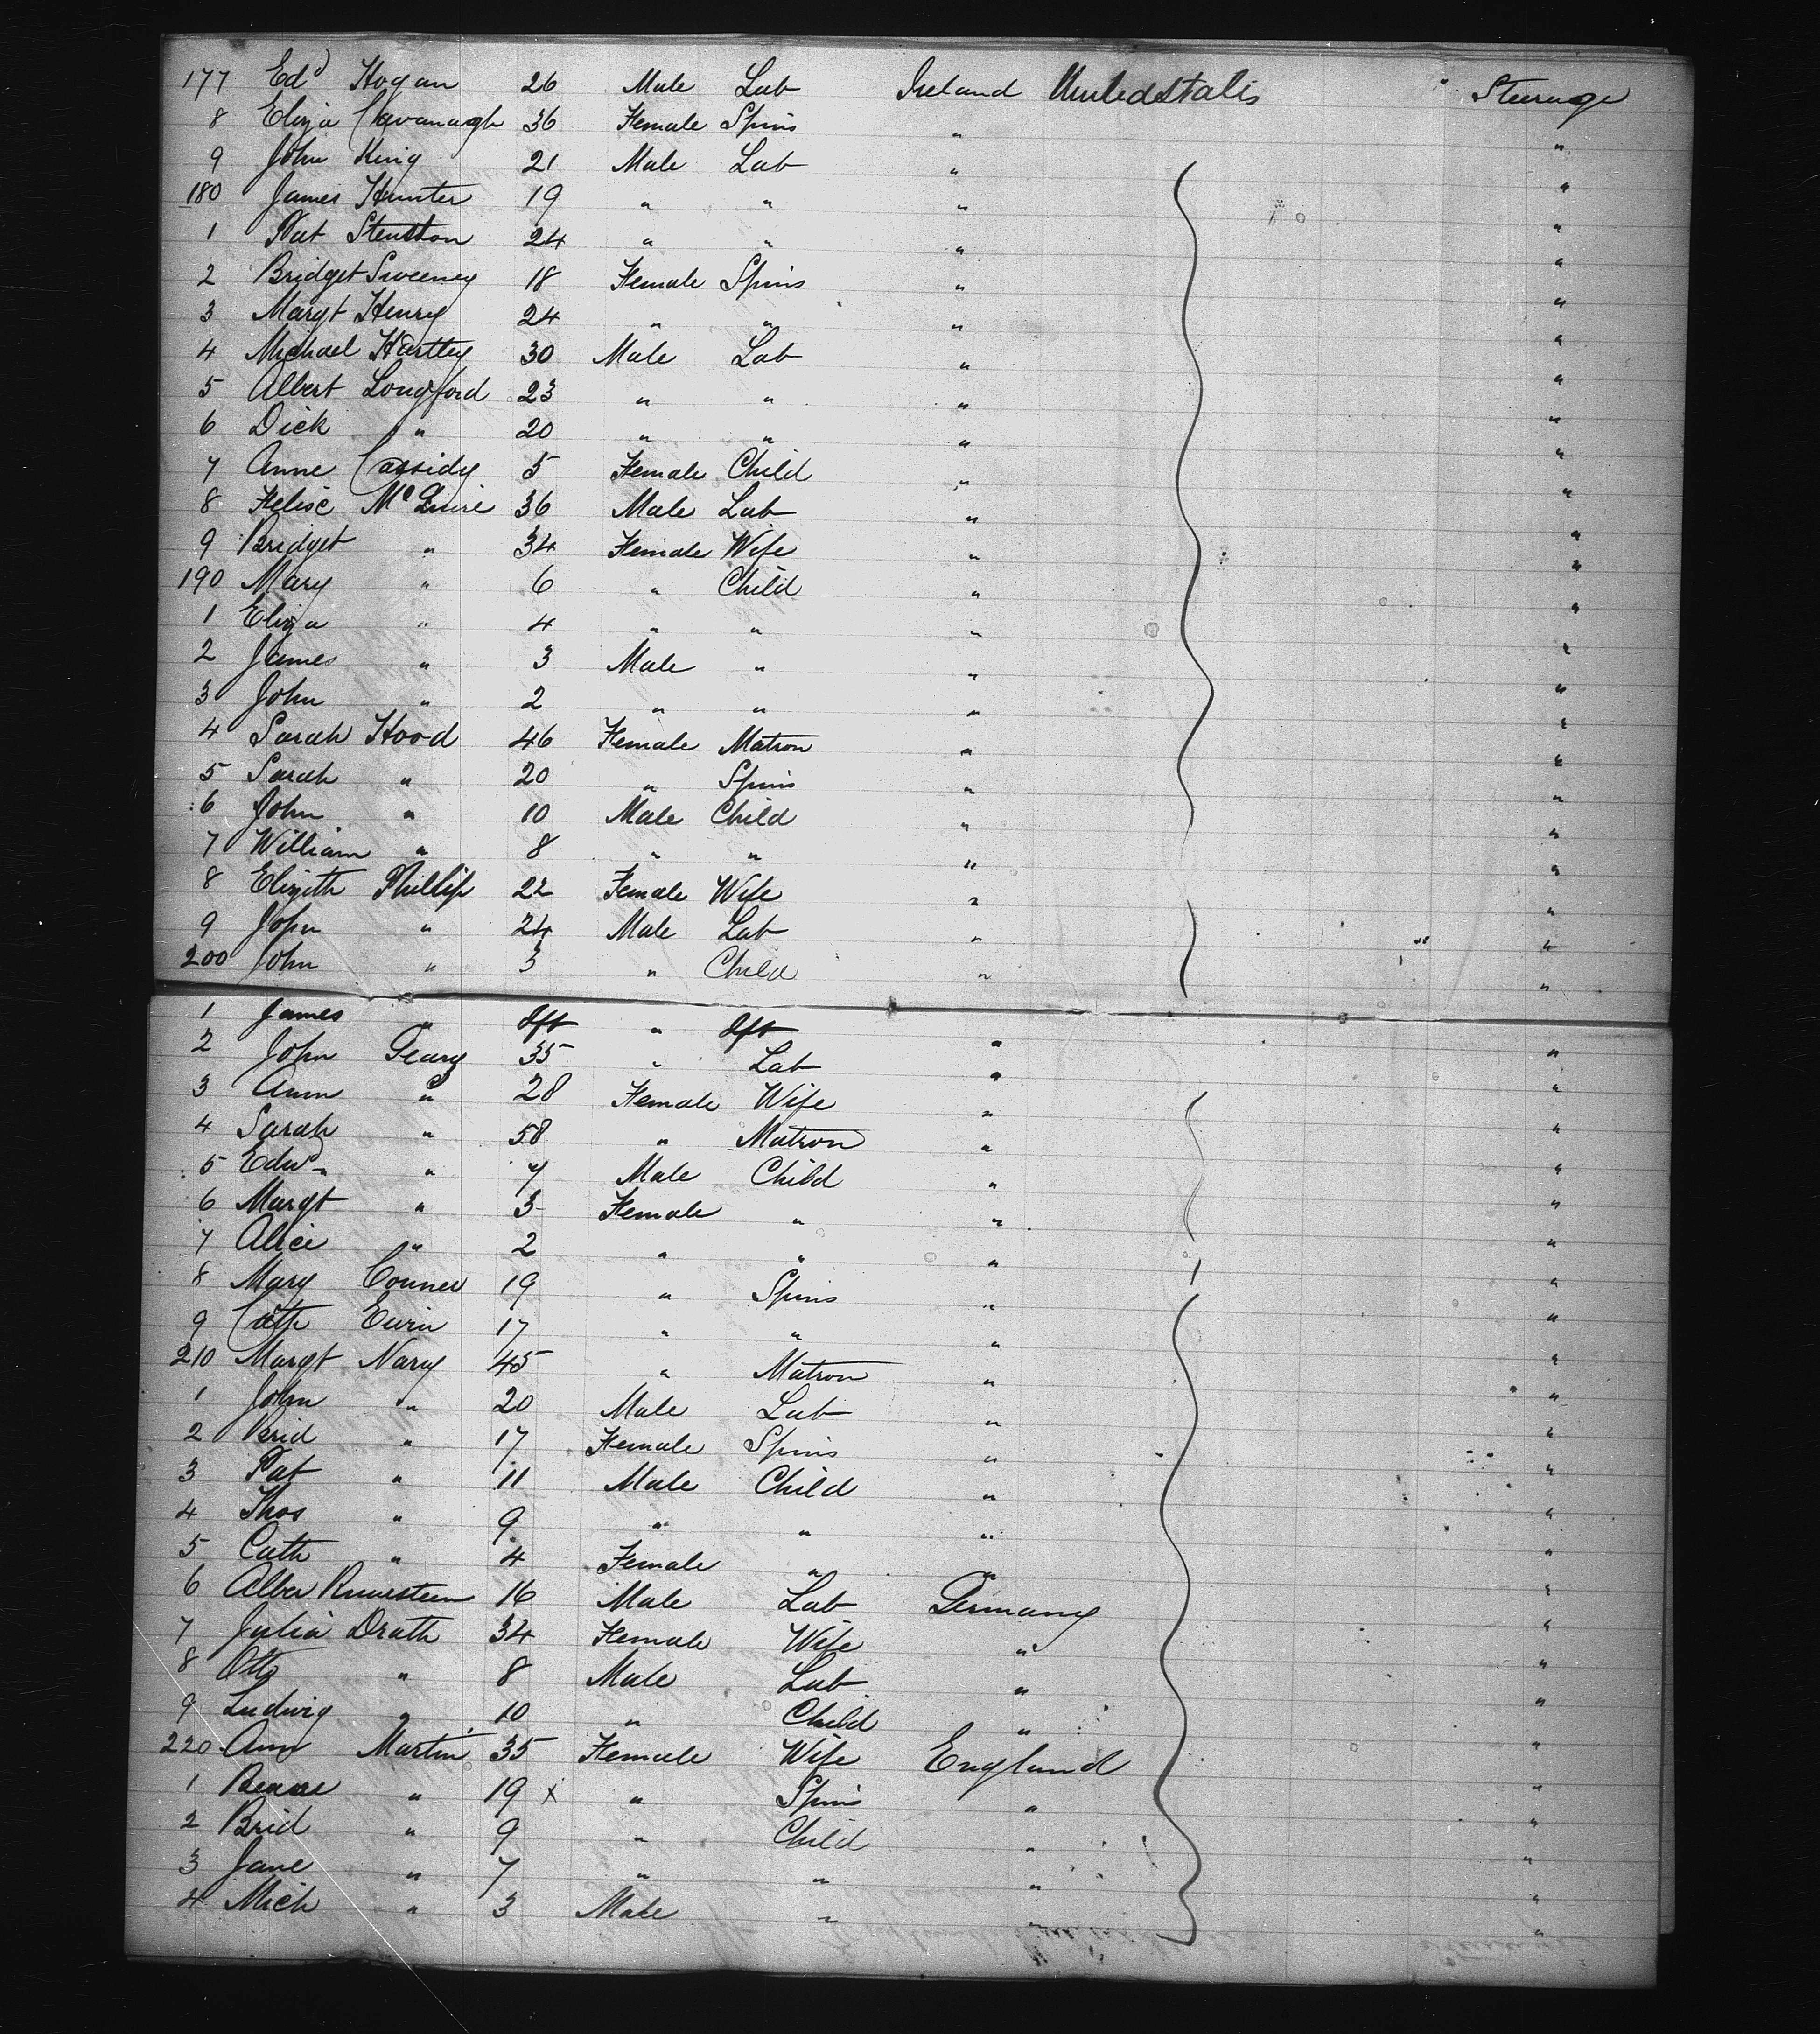 177 Edd Hogan 26 Male Lab Ireland United States Steerage
8 Eliza Cavanagh 36 Female Spins " "
9 John King 21 Male Lab " "
180 James Hunter 19 " " " "
1 Pat 24 " " " "
2 Bridget Sweeney 18 Female Spins " "
3 Margt Henry 24 " " " "
4 Michael Hartley 30 Male Lab " "
5 Albert Longford 23 " " " "
6 Dick " 20 " " " "
7 Anne Cassidy 5 Female Child " "
8 Mc Guire 36 Male Lab " "
9 Bridget " 34 Female Wife " "
190 Mary " 6 " Child " "
1 Eliza " 4 " " " "
2 James " 3 Male " " "
3 John " 2 " " " "
4 Sarah Hood 46 Female Matron " "
5 Sarah " 20 " Spins " "
6 John " 10 Male Child " "
7 William " 8 " " " "
8 Elizth Phillip 22 Female Wife " "
9 John " 24 Male Lab " "
200 John " 3 " Child " "
1 James " " " "
2 John Geary 35 " Lab " "
3 Ann " 28 Female Wife " "
4 Sarah " 58 " Matron " "
5 Edwd " 7 Male Child " "
6 Margt " 3 Female " " "
7 Alice " 2 " " " "
8 Mary Conner 19 " Spins " "
9 Cath 17 " " " "
210 Margt Nary 45 " Matron " "
1 John " 20 Male Lab " "
2 Brid " 17 Female Spins " "
3 Pat " 11 Male Child " "
4 Thos " 9 " " " "
5 Cath " 4 Female " " "
6 Alber 16 Male Lab Germany "
7 Julia Drath 34 Female Wife " "
8 Otto " 8 Male Lab " "
9 Ludwig " 10 " Child " "
220 Ann Martin 35 Female Wife England "
1 " 19 x " Spins " "
2 Brid " 9 " Child " "
3 Jane " 7 " " " "
4 Mich " 3 Male " " "